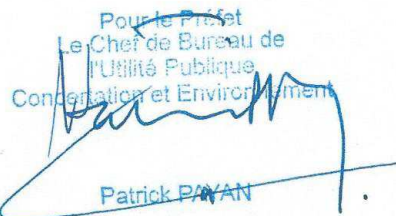 Pour le Préfet
Le Chef de Bureau de
l'Utilité Publique
Concertation et Environnement
Patrick PAYAN